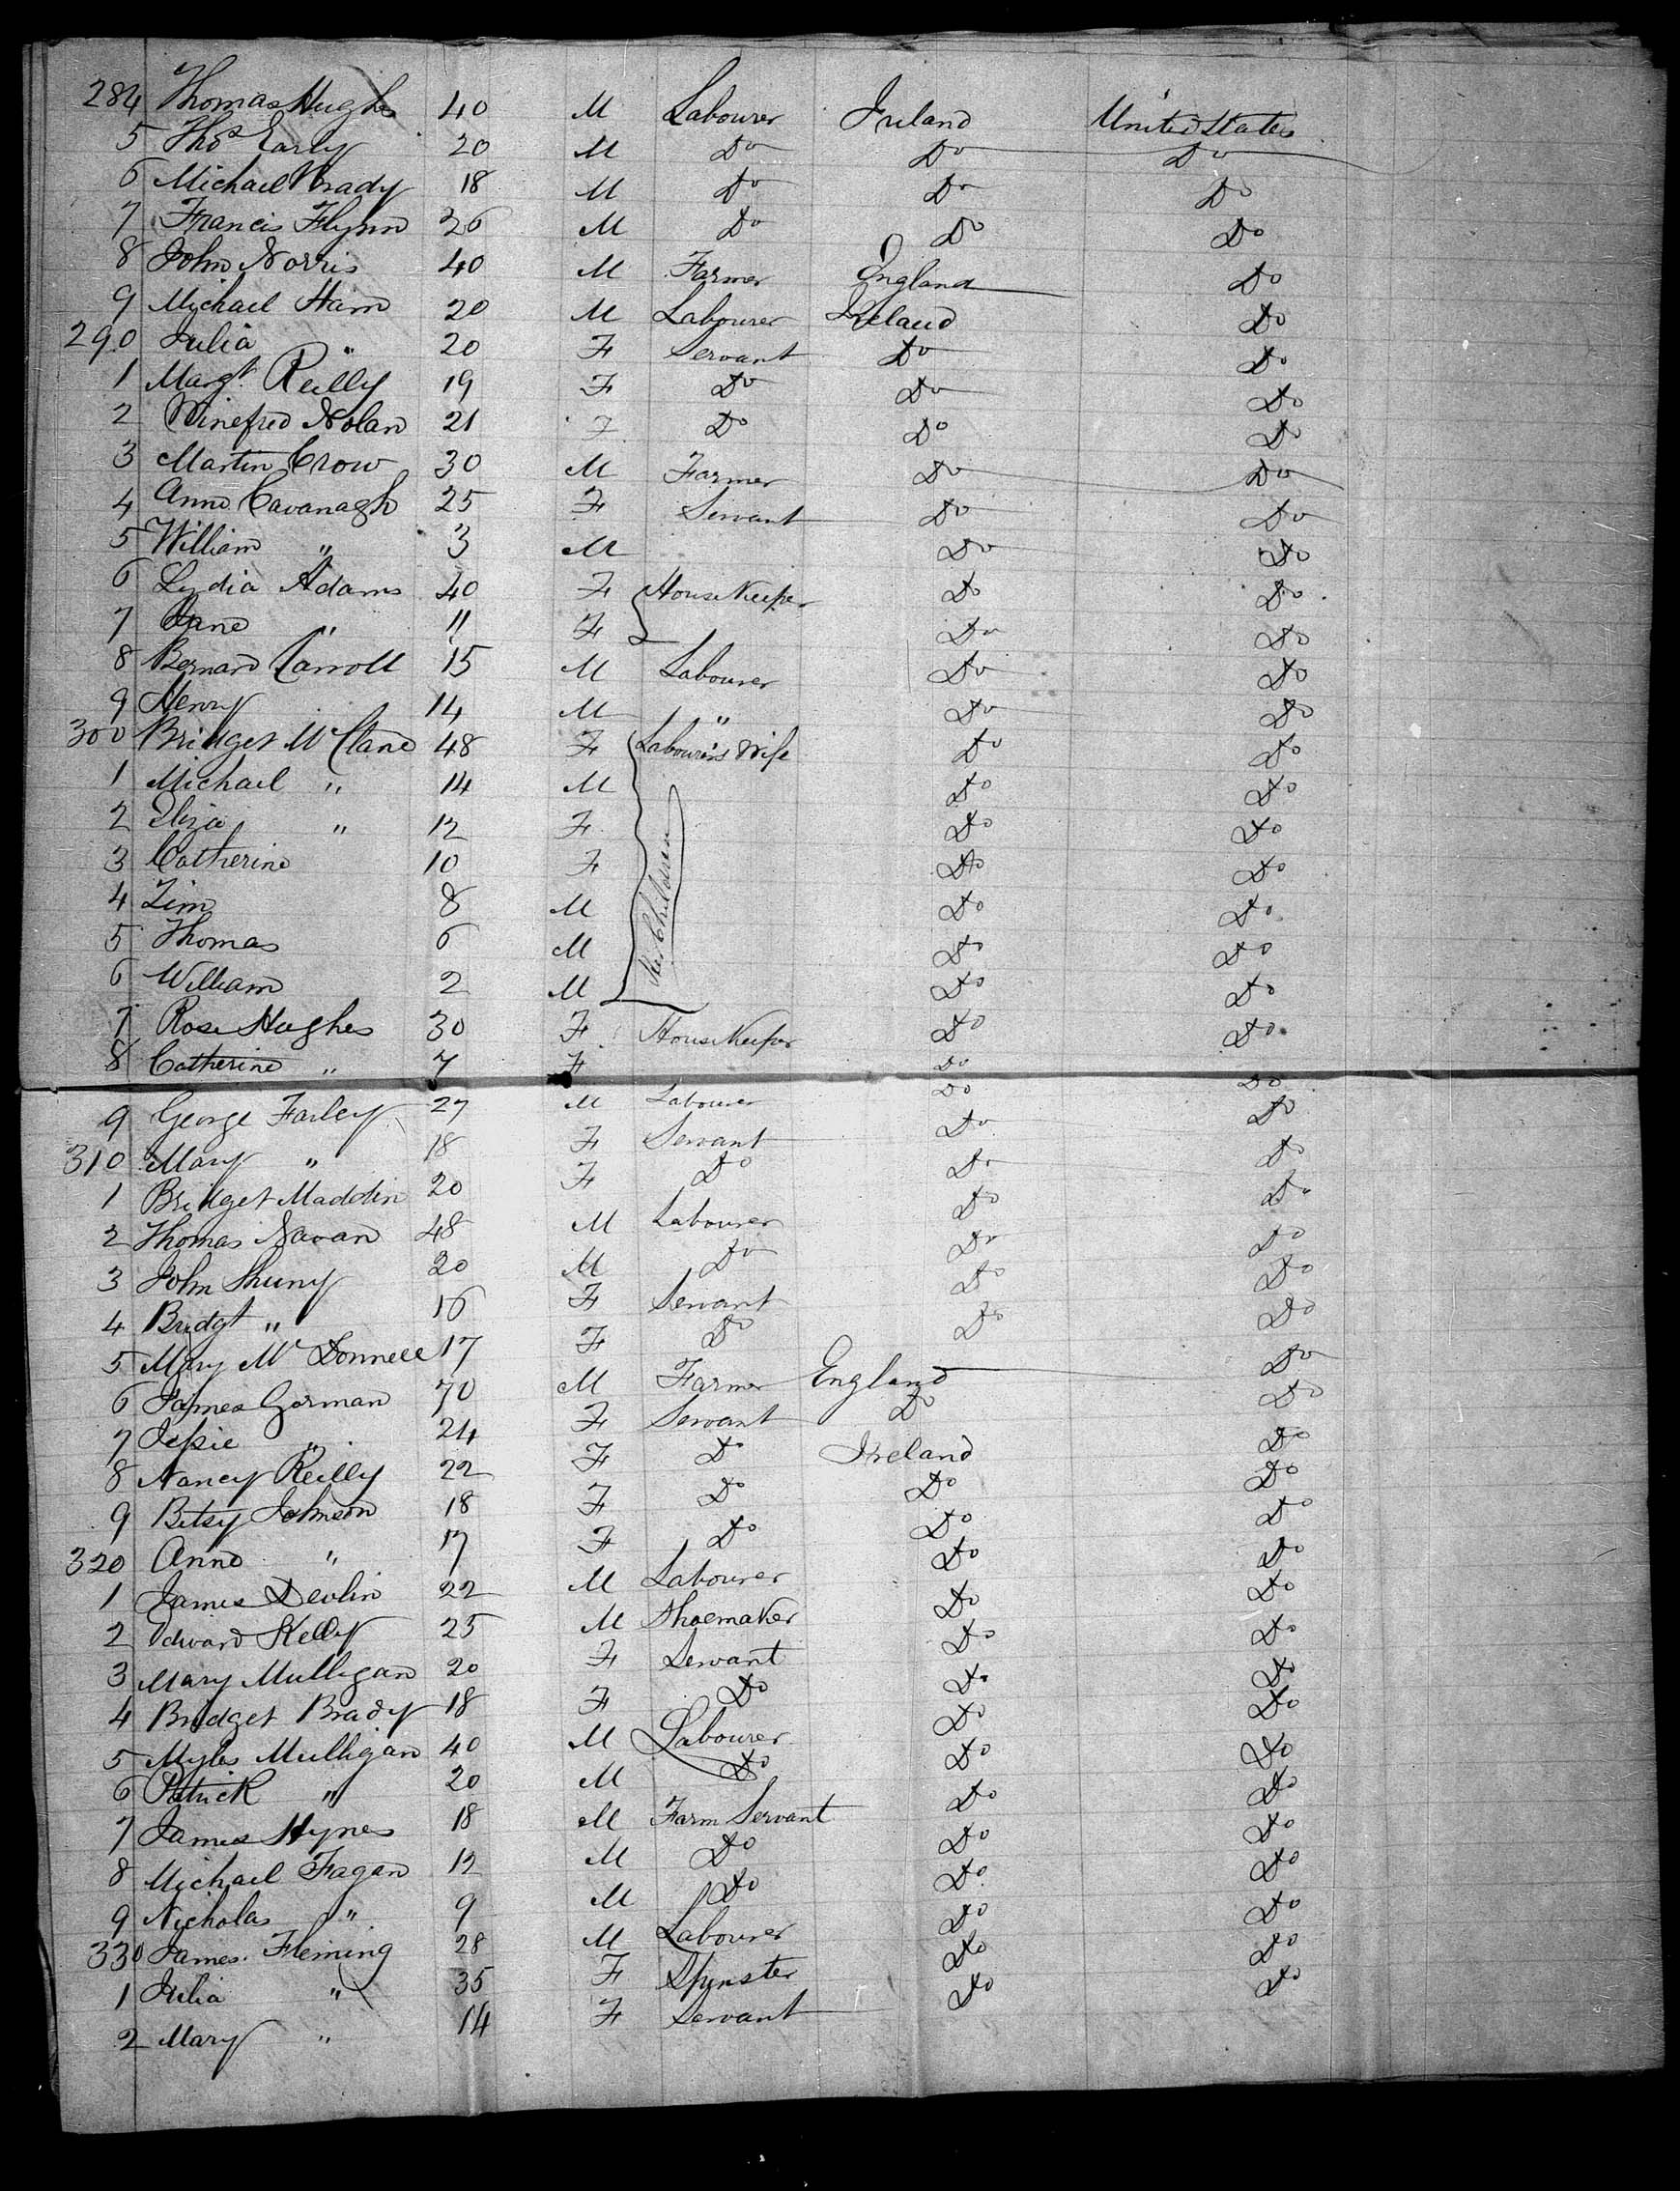 284 Thomas Hughes 40 M Labourer Ireland United States
5 Thos Early 20 M Do Do Do
6 Michael Brady 18 M Do Do Do
7 Francis Flynn 26 M Do Do Do
8 John Norris 40 M Farmer England Do
9 Michael Ham 20 M Labourer Ireland Do
290 Julia " 20 F Servant Do Do
1 Margt. Reilly 19 F Do Do Do
2 Winefred Nolan 21 F Do Do Do
3 Martin Crow 30 M Farmer Do Do
4 Anne Cavanagh 25 F Servant Do Do
5 William " 3 M Do Do
6 Lydia Adams 40 F HouseKeeper Do Do
7 Jane " 11 F Do Do
8 Bernard Carroll 15 M Labourer Do Do
9 Henry 14 M " Do Do
300 Bridget McClane 48 F Labourer's Wife Do Do
1 Michael " 14 M Do Do
2 Eliza " 12 F Do Do
3 Catherine 10 F Her Children Do Do
4 Tim 8 M Do Do
5 Thomas 6 M Do Do
6 William 2 M Do Do
7 Rose Hughes 30 F HouseKeeper Do Do
8 Catherine " 7 F Do
9 George Farley 27 M Labourer Do Do
310 Mary " 18 F Servant Do Do
1 Bridget Maddin 20 F Do Do Do
2 Thomas Navan 48 M Labourer Do Do
3 John Shuny 20 M Do Do Do
4 Bridgt " 16 F Servant Do Do
5 Mary McDonnell 17 F Do Do Do
6 James Gorman 70 M Farmer England Do
7 Jessie " 24 F Servant Do Do
8 Nancy Reilly 22 F Do Ireland Do
9 Betsy Johnson 18 F Do Do Do
320 Anne " 17 F Do Do Do
1 James Devlin 22 M Labourer Do Do
2 Edward Kelly 25 M Shoemaker Do Do
3 Mary Mulligan 20 F Servant Do Do
4 Bridget Brady 18 F Do Do Do
5 Myles Mulligan 40 M Labourer Do Do
6 Patrick " 20 M Do Do Do
7 James Hynes 18 M Farm Servant Do Do
8 Michael Fagan 12 M Do Do Do
9 Nicholas " 9 M Do Do Do
330 James Fleming 28 M Labourer Do Do
1 Julia " 35 F Spinster Do Do
2 Mary " 14 F Servant Do Do